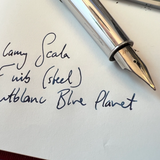 Lamy Scala
F nib (steel)
ntblanc Blue Planet